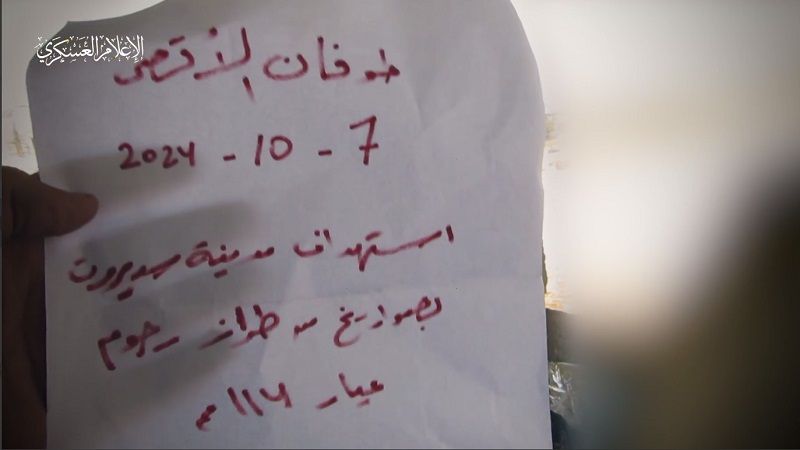 الإعلام العسكري
طوفان الأقصى
7 - 10 - 2024
استهداف مدينة سديروت
بصواريخ من طراز رجوم
عيار ١١٤ مم